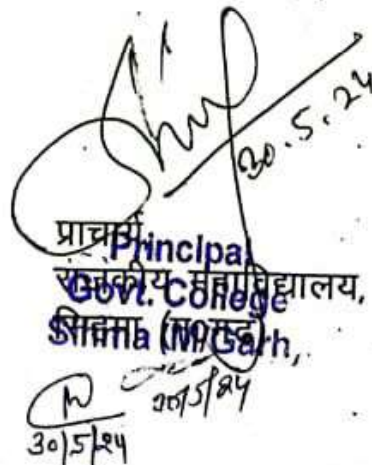 30.5.24
प्राचार्य
Principal
राजकीय महाविद्यालय,
Govt. College
सिहमा
Sihma (M/Garh,
30/5/24
30/5/24